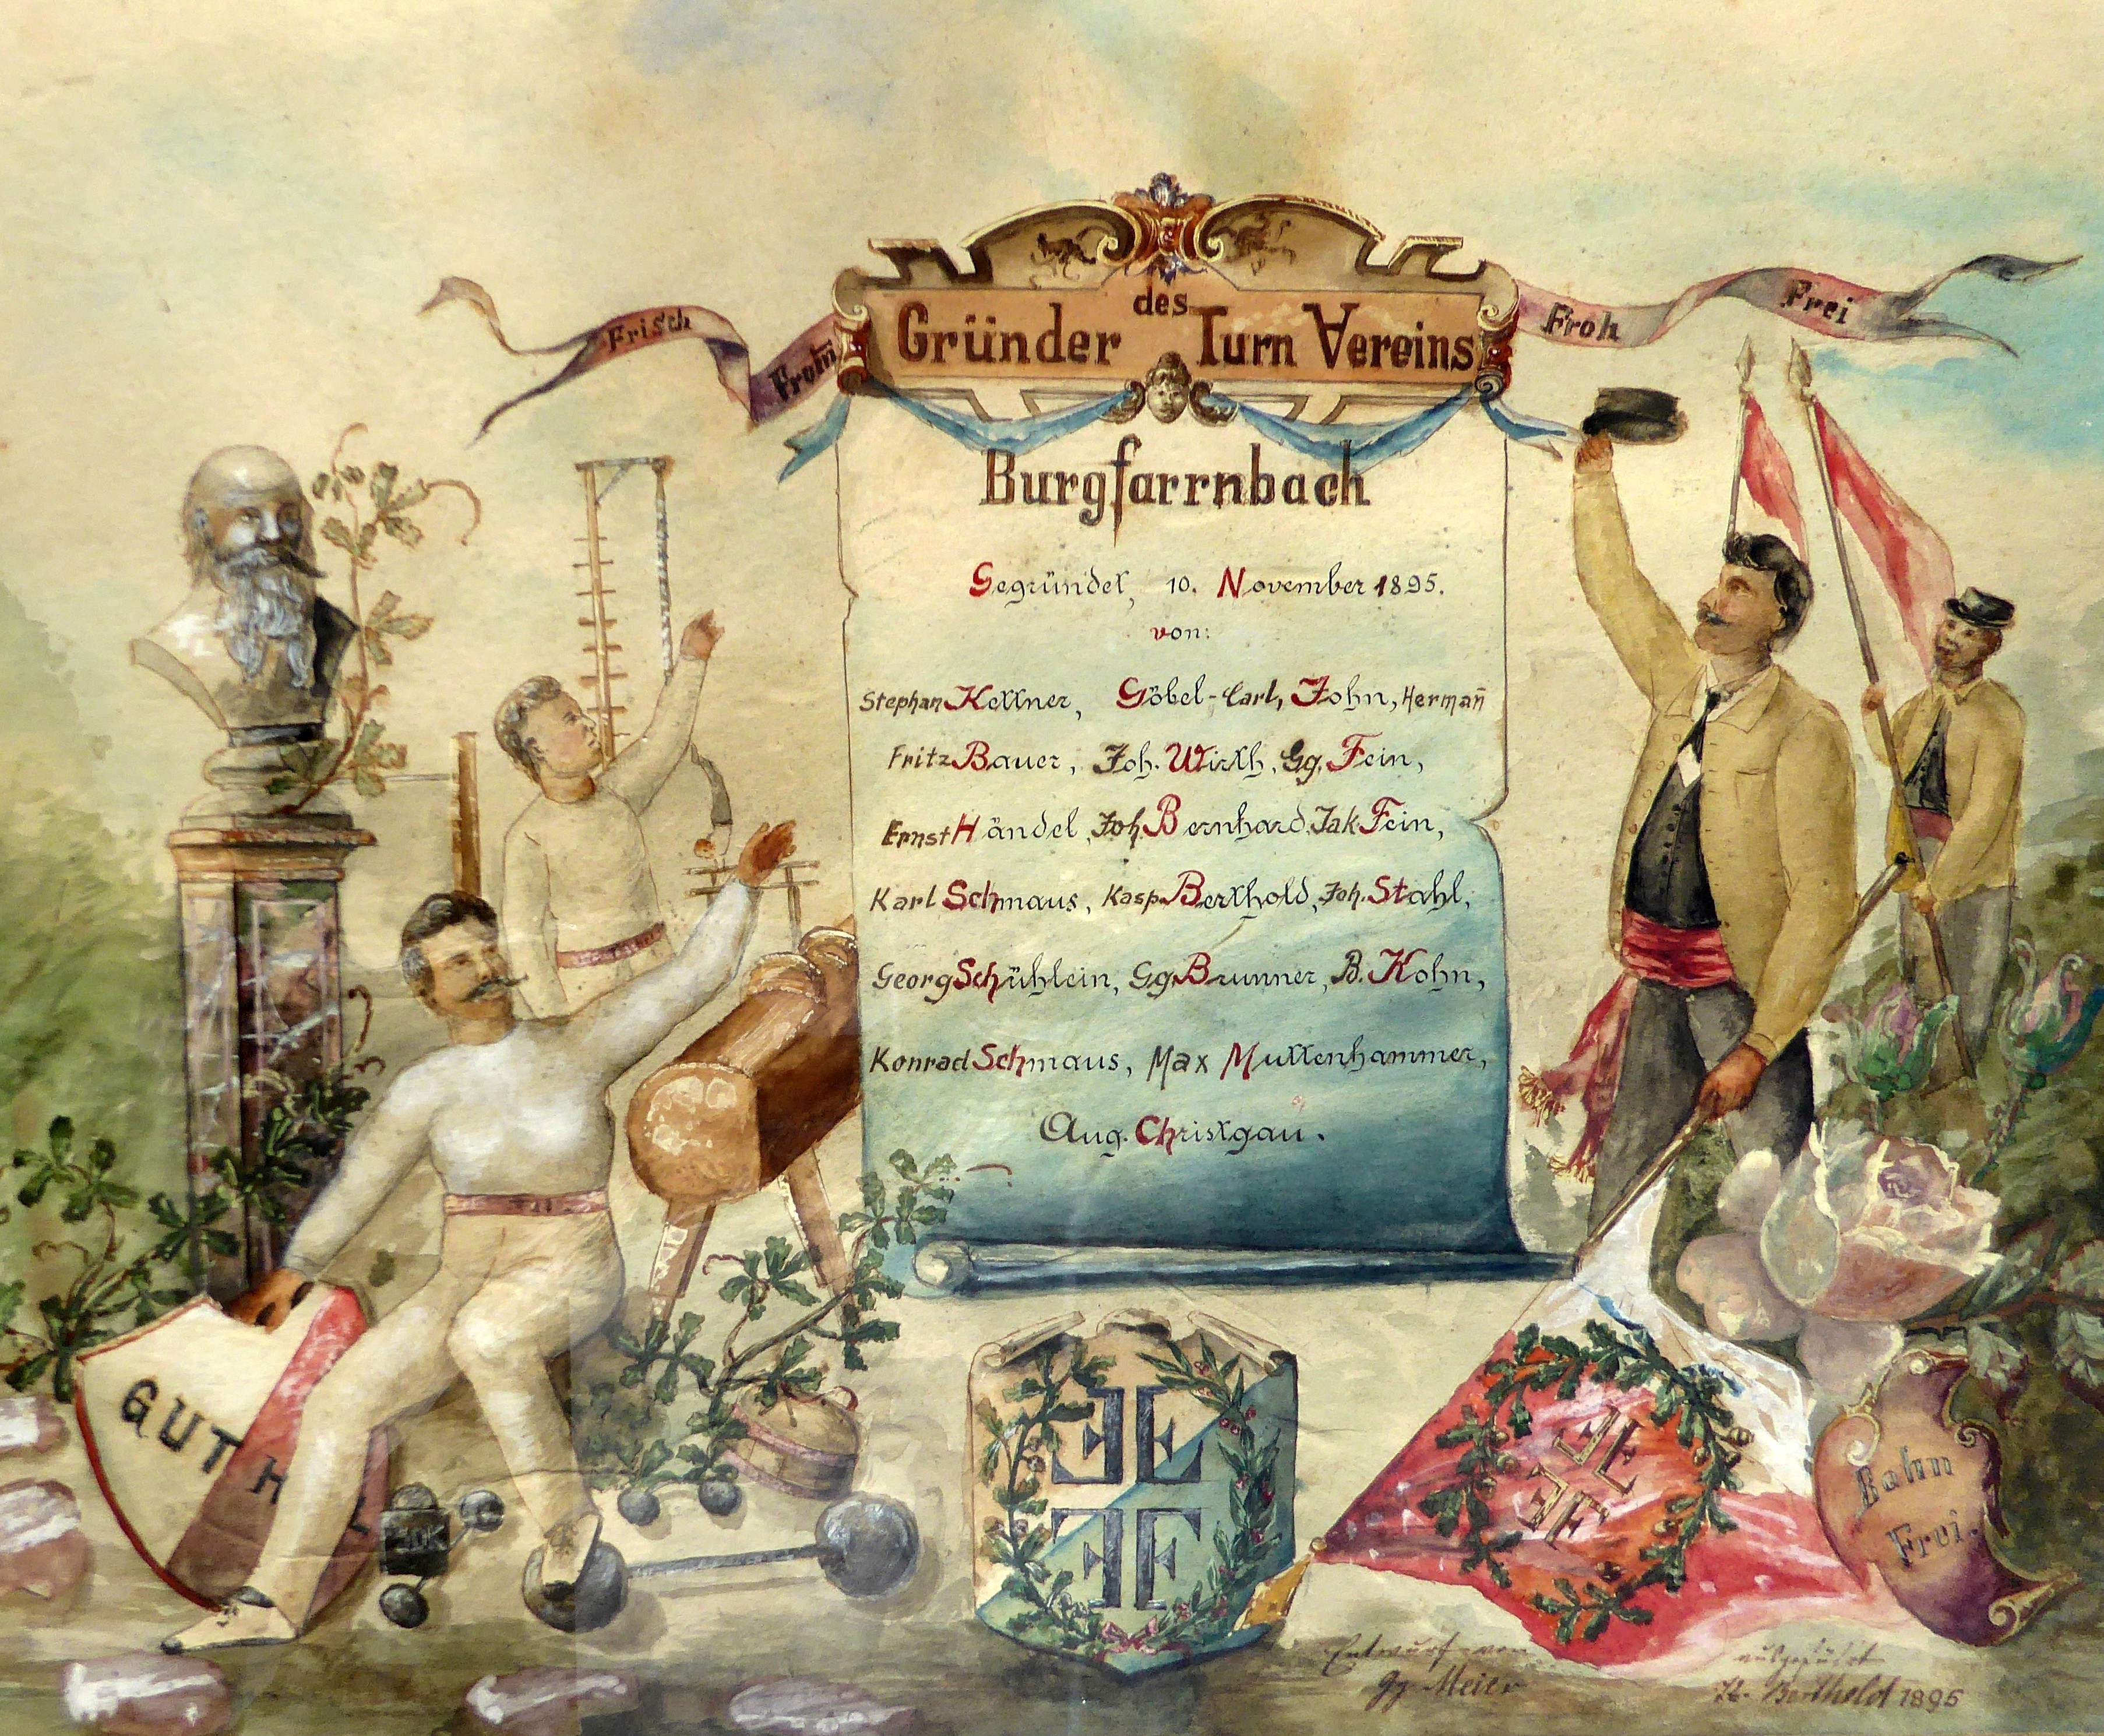 Frisch
Fromm
des
Gründer Turn Vereins
Froh
Frei
Burgfarrnbach
Gegründet, 10. November 1895.
von:
Stephan Kettner, Göbel-Carl, John, Hermañ
Fritz Bauer, Joh. Wirth, Gg. Fein,
Ernst Händel, Joh. Bernhard, Jak Fein,
Karl Schmaus, Kasp. Berthold, Joh. Stahl,
Georg Schühlein, Gg. Brunner, B. Kohn,
Konrad Schmaus, Max Muttenhammer,
Aug. Christgau.
GUT H
Bahn
Frei.
Entwurf von
Gg. Meier
ausgeführt
Berthold 1895